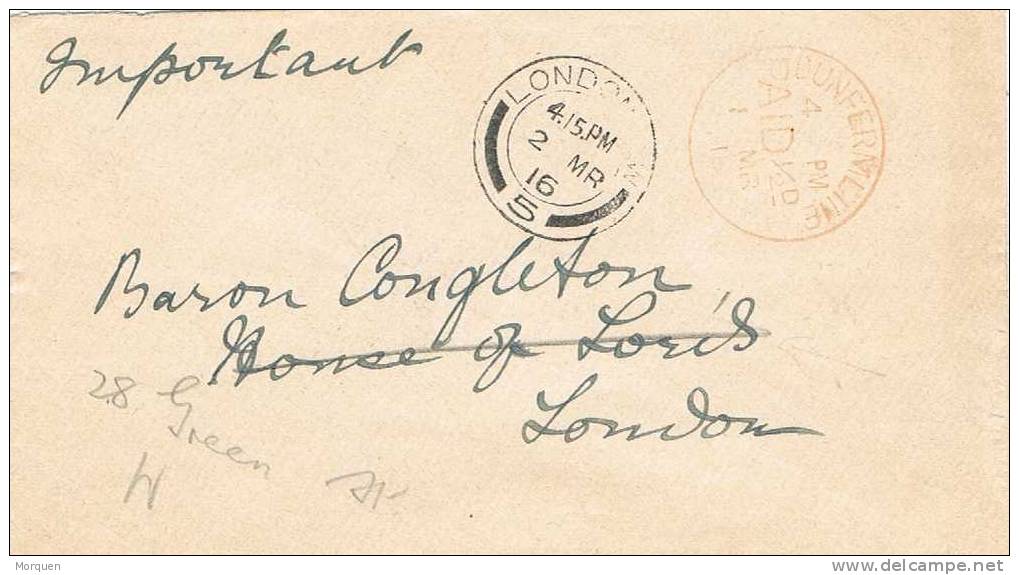 Important
LONDON W
4.15.PM
2 MR
16
5
DUNFERMLINE
4 PM
PAID ½D
1 MR
Baron Congleton
House of Lords
London
28 Green St
W
Morquen
delcampe.net